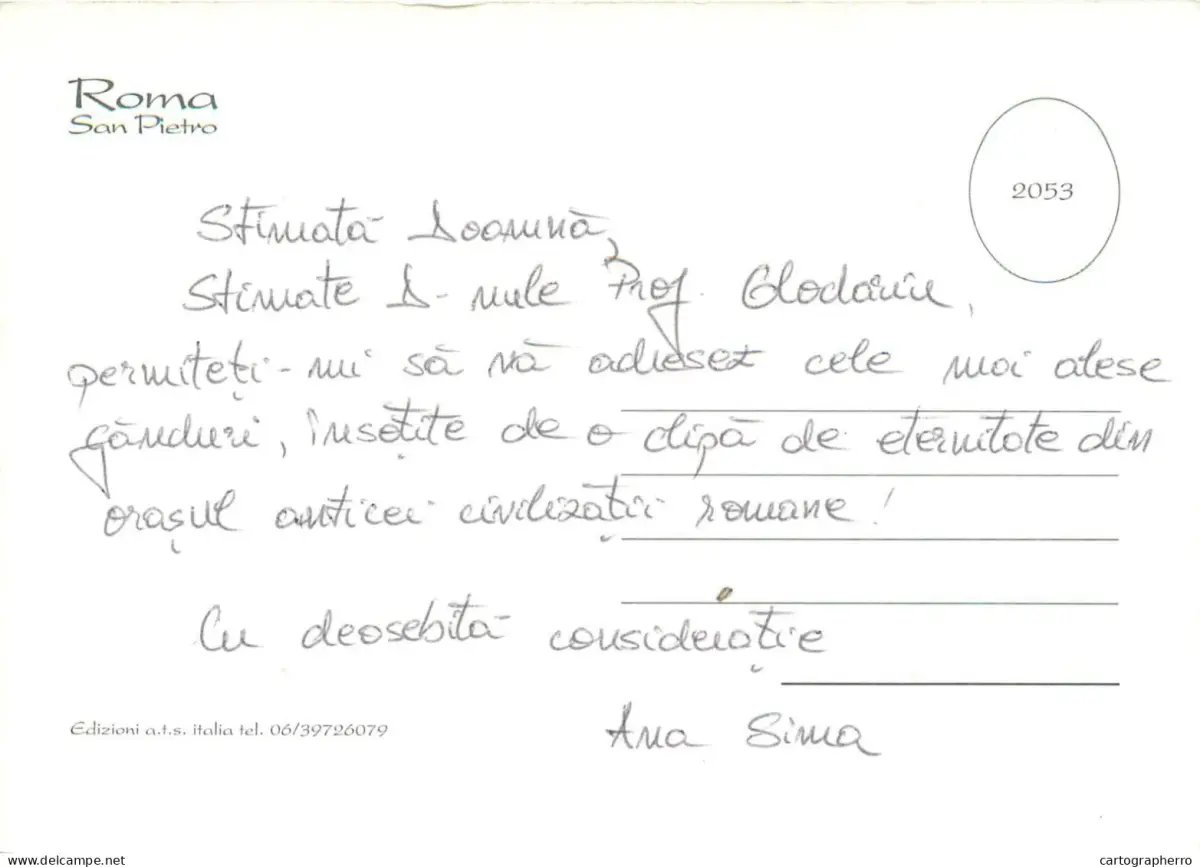 Roma
San Pietro
2053
Stimată Doamnă,
Stimate D-nule Prof. Glodariu,
permiteți-mi să vă adresez cele mai alese
gânduri, însoțite de o clipă de eternitate din
orașul anticei civilizații romane!
Cu deosebită considerație
Ana Sima
Edizioni a.t.s. italia tel. 06/39726079
www.delcampe.net
cartographerro